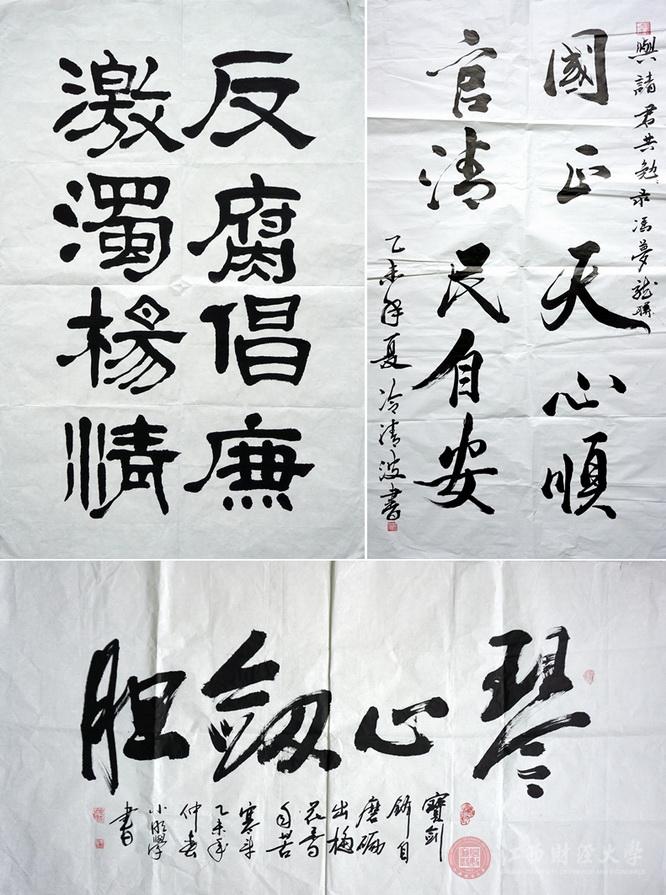 反腐倡廉
激濁楊清
與諸君共勉 录馮夢龍联
國正天心順
官清民自安
乙未年夏 冷清波書
琴心劍胆
寶劍
鋒自
磨礪
出梅
花香
自苦
寒来
乙未年
仲春
書
江西财经大学